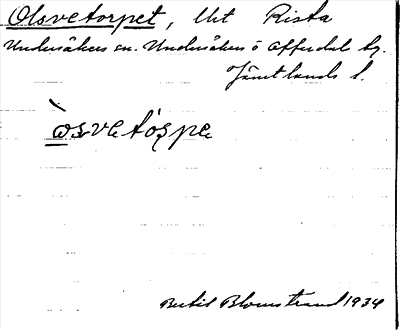 Olsvetorpet, Utt Rista
Undersåkers sn. Undersåkers o Offerdal tg.
Jämtlands l.
òsvetóspe
Bertil Blomstrand 1934